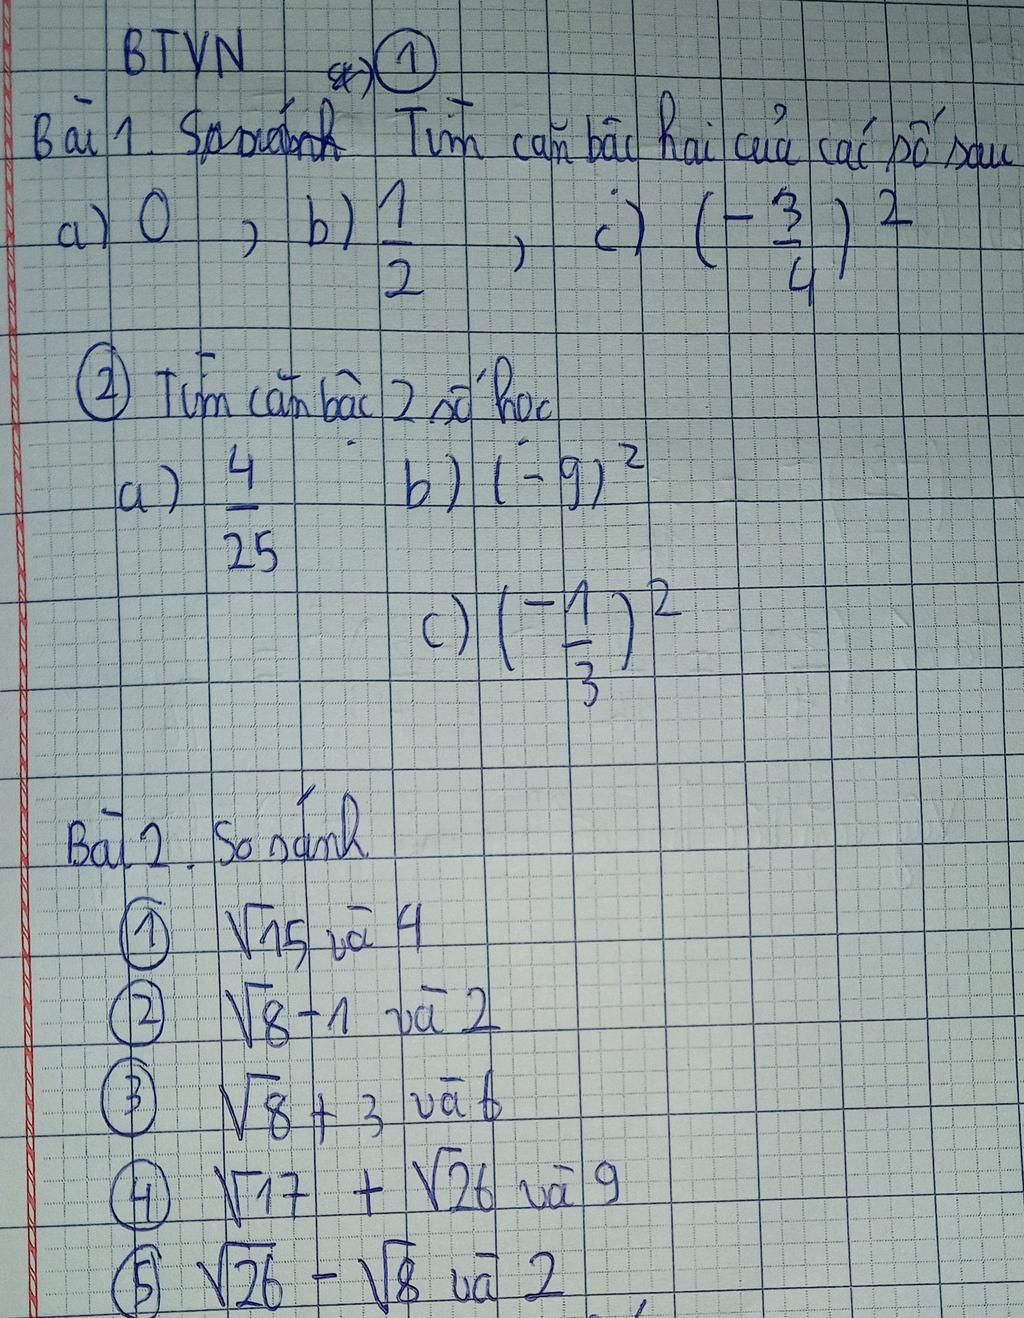 BTVN
①
Bài 1. Tìm căn bậc hai của các số sau
a) 0 , b) 1/2 , c) (-3/4)²
② Tìm căn bậc 2 số học
a) 4/25 b) (-9)²
c) (-1/3)²
Bài 2. So sánh
① √15 và 4
② √8 - 1 và 2
③ √8 + 3 và 6
④ √17 + √26 và 9
⑤ √26 - √8 và 2